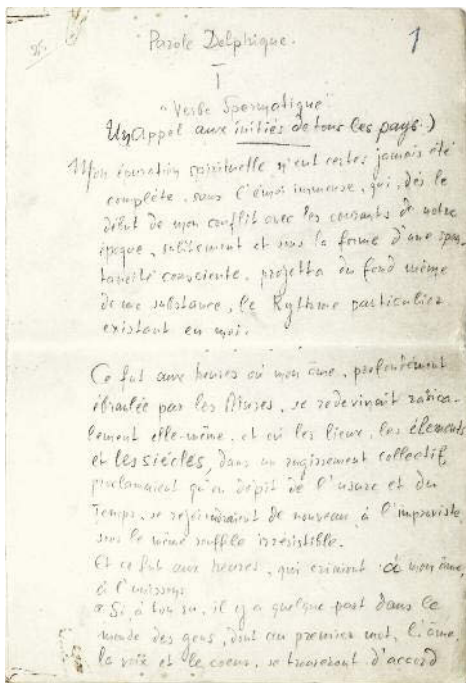 Parole Delphique.
1
I
"Verbe Spermatique"
Un Appel aux initiés de tous les pays)
Mon spirituelle n'eut certes jamais été
complète, sans l'émoi immense, qui, dès le
début de mon conflit avec les courants de notre
époque, subitement et sous la forme d'une spon-
tanéité consciente, projetta du fond même
de ma substance, le Rythme particulier
existant en moi.
Ce fut aux heures où mon âme, profondément
ébranlée par les, se redevinait radica-
lement elle-même, et où les lieux, les éléments
et les siècles, dans un rugissement collectif
proclamaient qu'en dépit de l'usure et du
Temps, se rejoindraient de nouveau, à l'improviste,
sous le même souffle irrésistible.
Et ce fut aux heures, qui criaient à mon âme,
à l'unisson:
"Si, à ton su, il y a quelque part dans le
monde des gens, dont au premier mot, l'âme,
la voix et le coeur, se trouveront d'accord